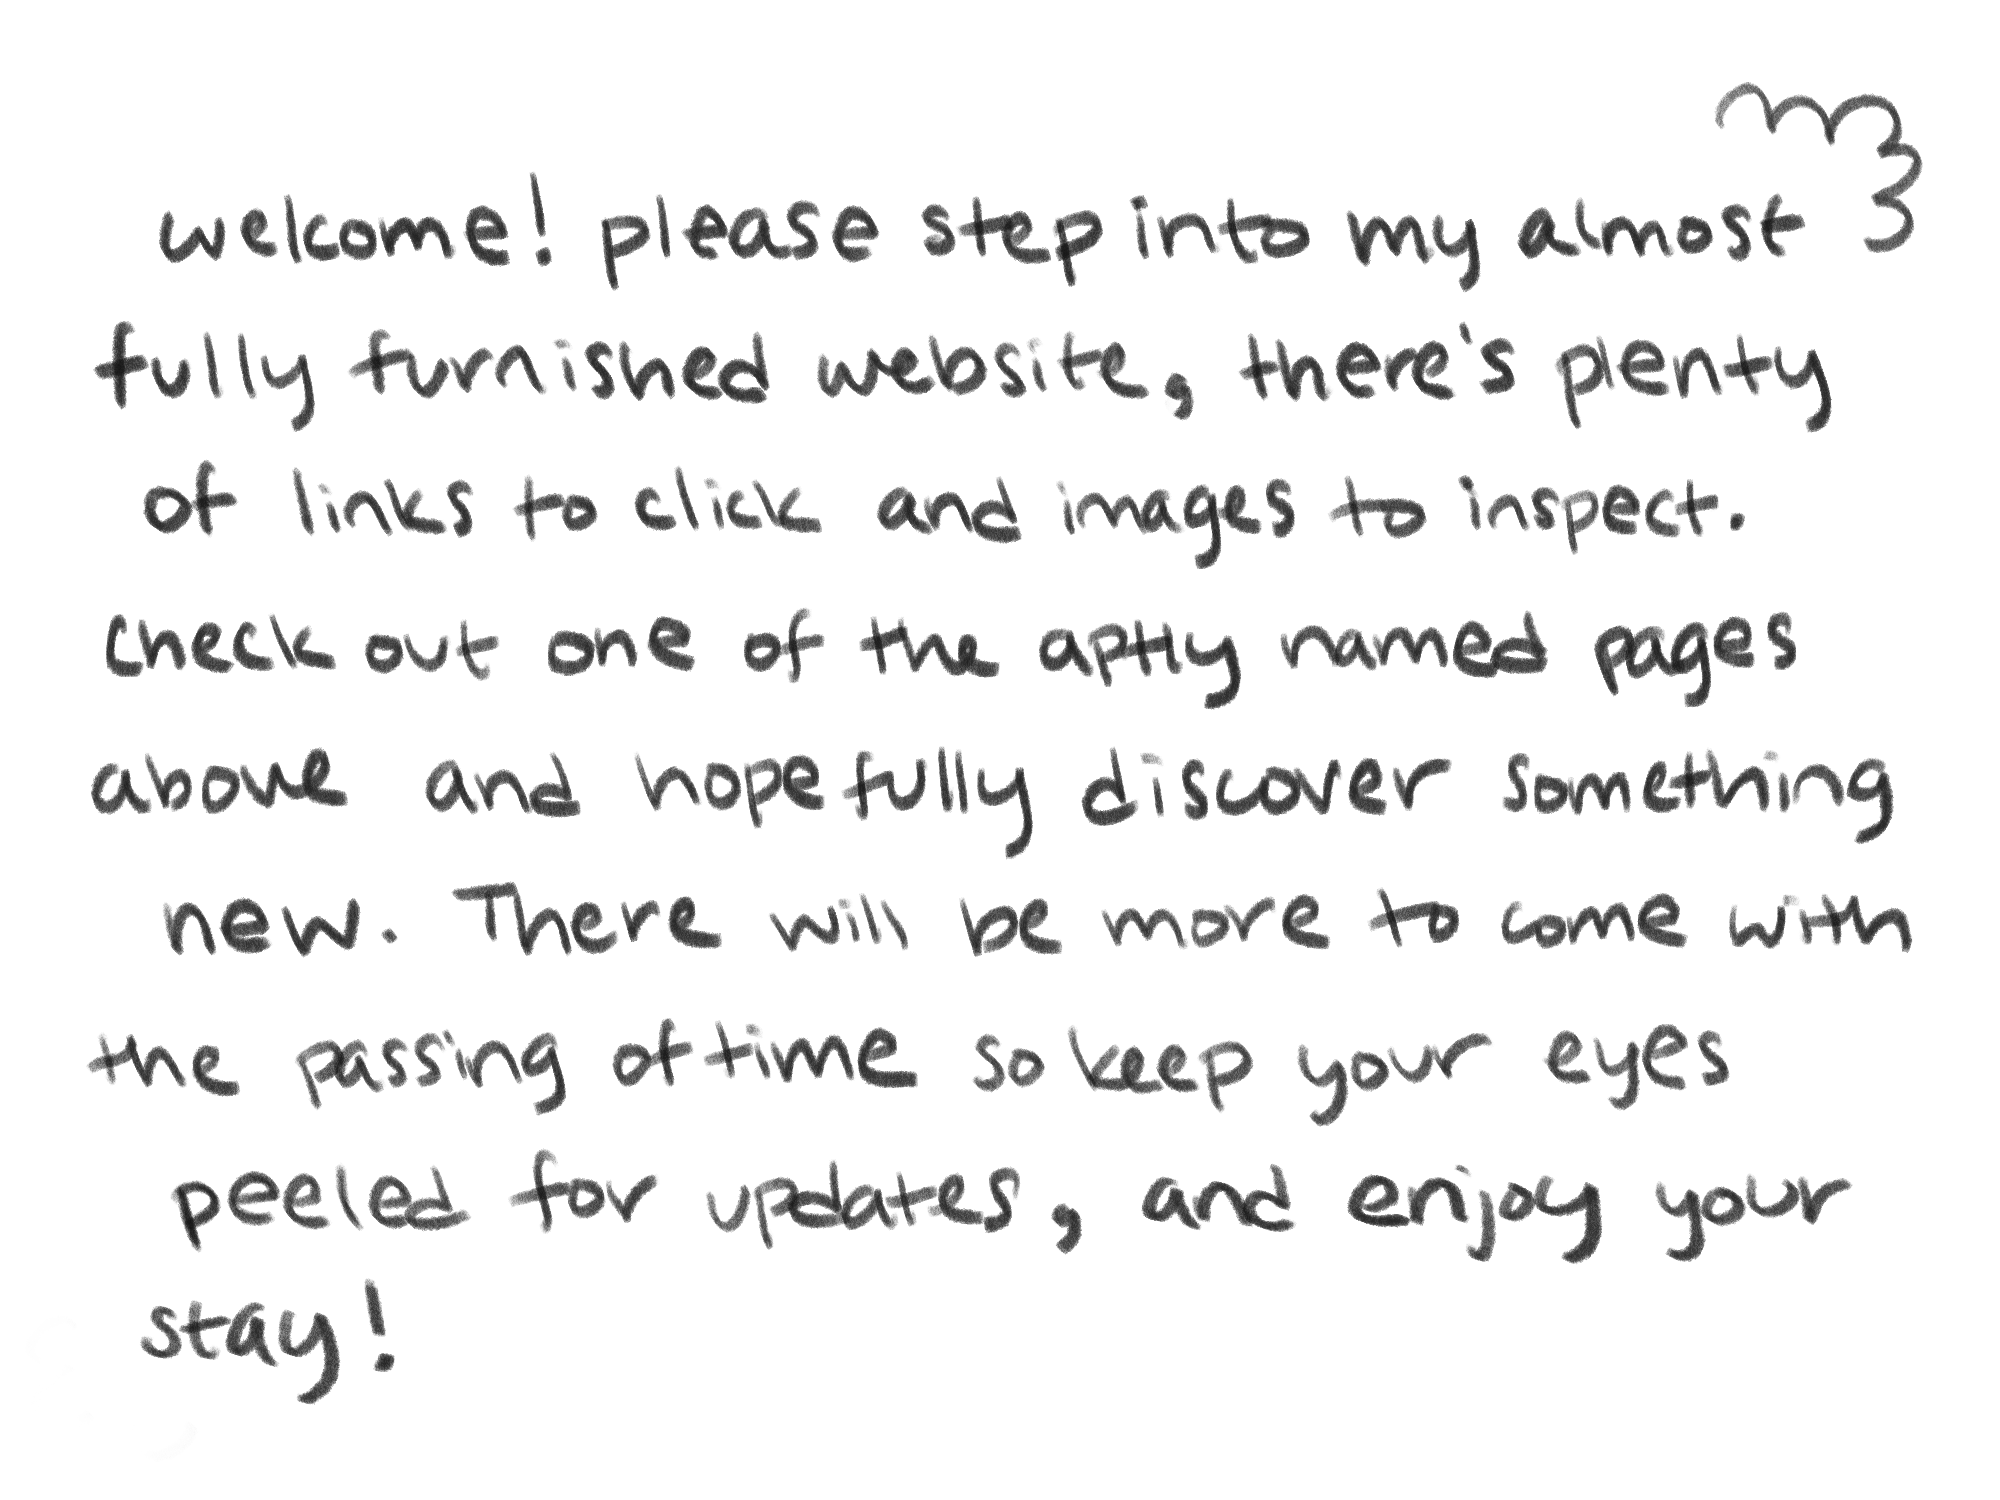 welcome! please step into my almost
fully furnished website, there's plenty
of links to click and images to inspect.
check out one of the aptly named pages
above and hopefully discover something
new. There will be more to come with
the passing of time so keep your eyes
peeled for updates, and enjoy your
stay!